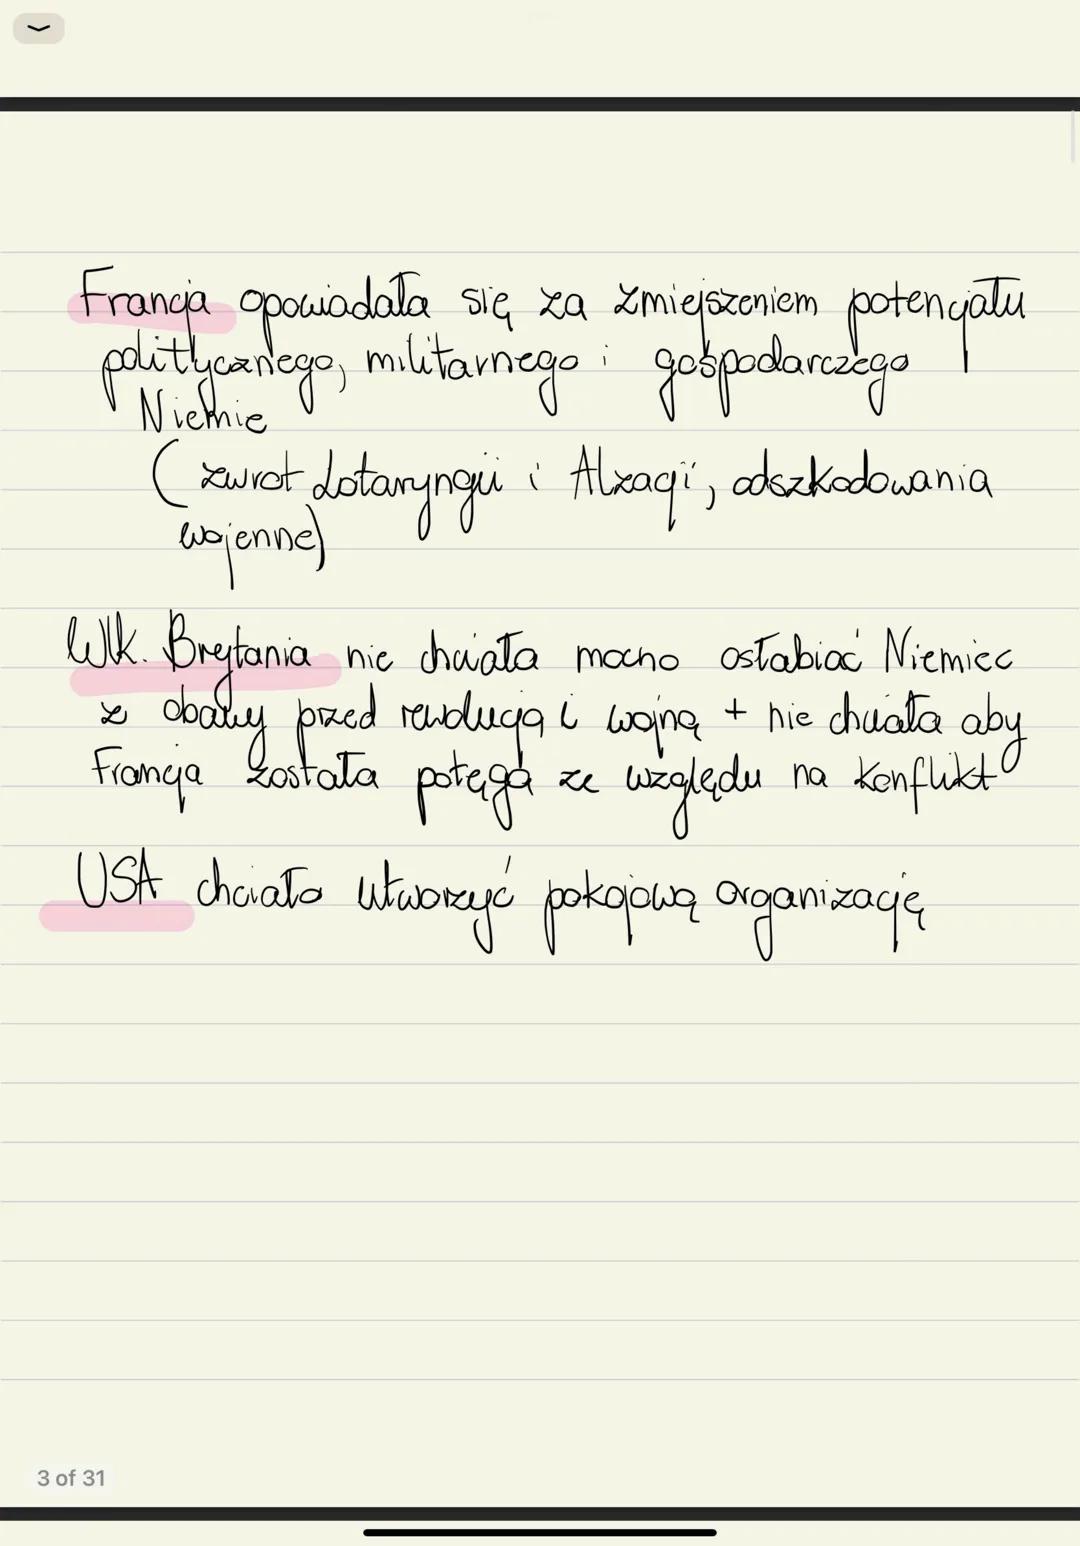 Francja opowiadała się za zmiejszeniem potencjału
politycznego, militarnego i gospodarczego
Niemie
( zwrot Lotaryngii i Alzacji, odszkodowania
wojenne)
Wlk. Brytania nie chciała mocno osłabiać Niemiec
z obawy przed rewolucją i wojną + nie chciała aby
Francja została potęgą ze względu na konflikt
USA chciało utworzyć pokojową organizację
3 of 31